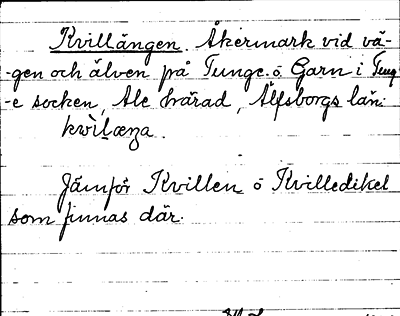 Kvillängen. Åkermark vid vä-
-gen och älven på Tunge ö. Garn i Tung-
-e socken, Ale härad, Älfsborgs län.
kwìlæŋa.
Jämför Kvillen o Kvilledikel
som finnas där.